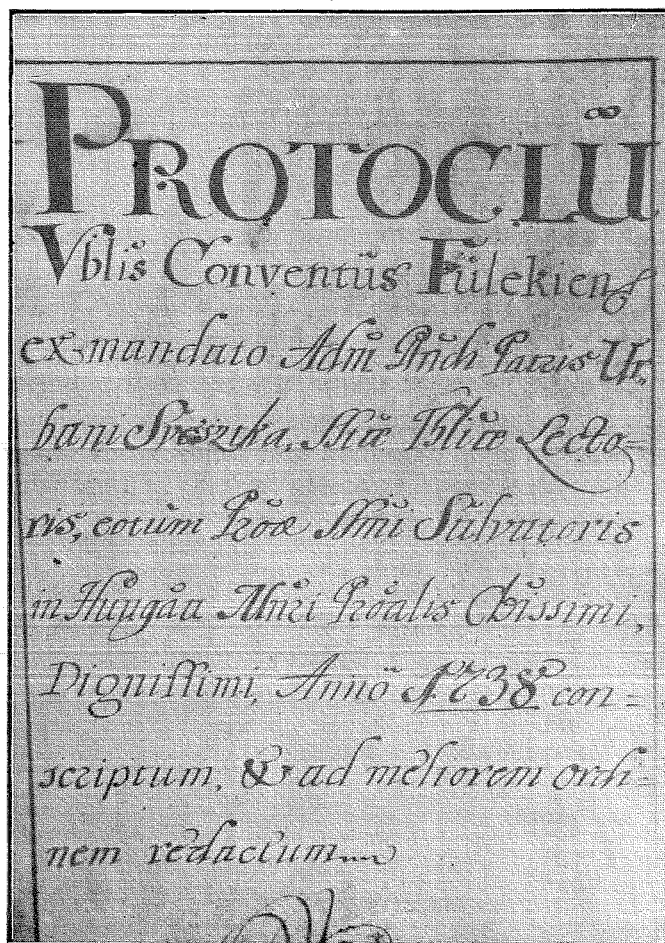 PROTOCLŪ
Vblis Conventûs Fülekiens
ex mandato Adm̃ Rñdi Patris Ur,
bani Sresztka, Ssiæ Theliæ Lecto=
ris, eotum Proæ Ssmi Salvatoris
in Hungãa Mñri Proalis Cbissimi,
Dignissimi, Anno 1738 con=
scriptum, & ad meliorem ordi=
nem redactum